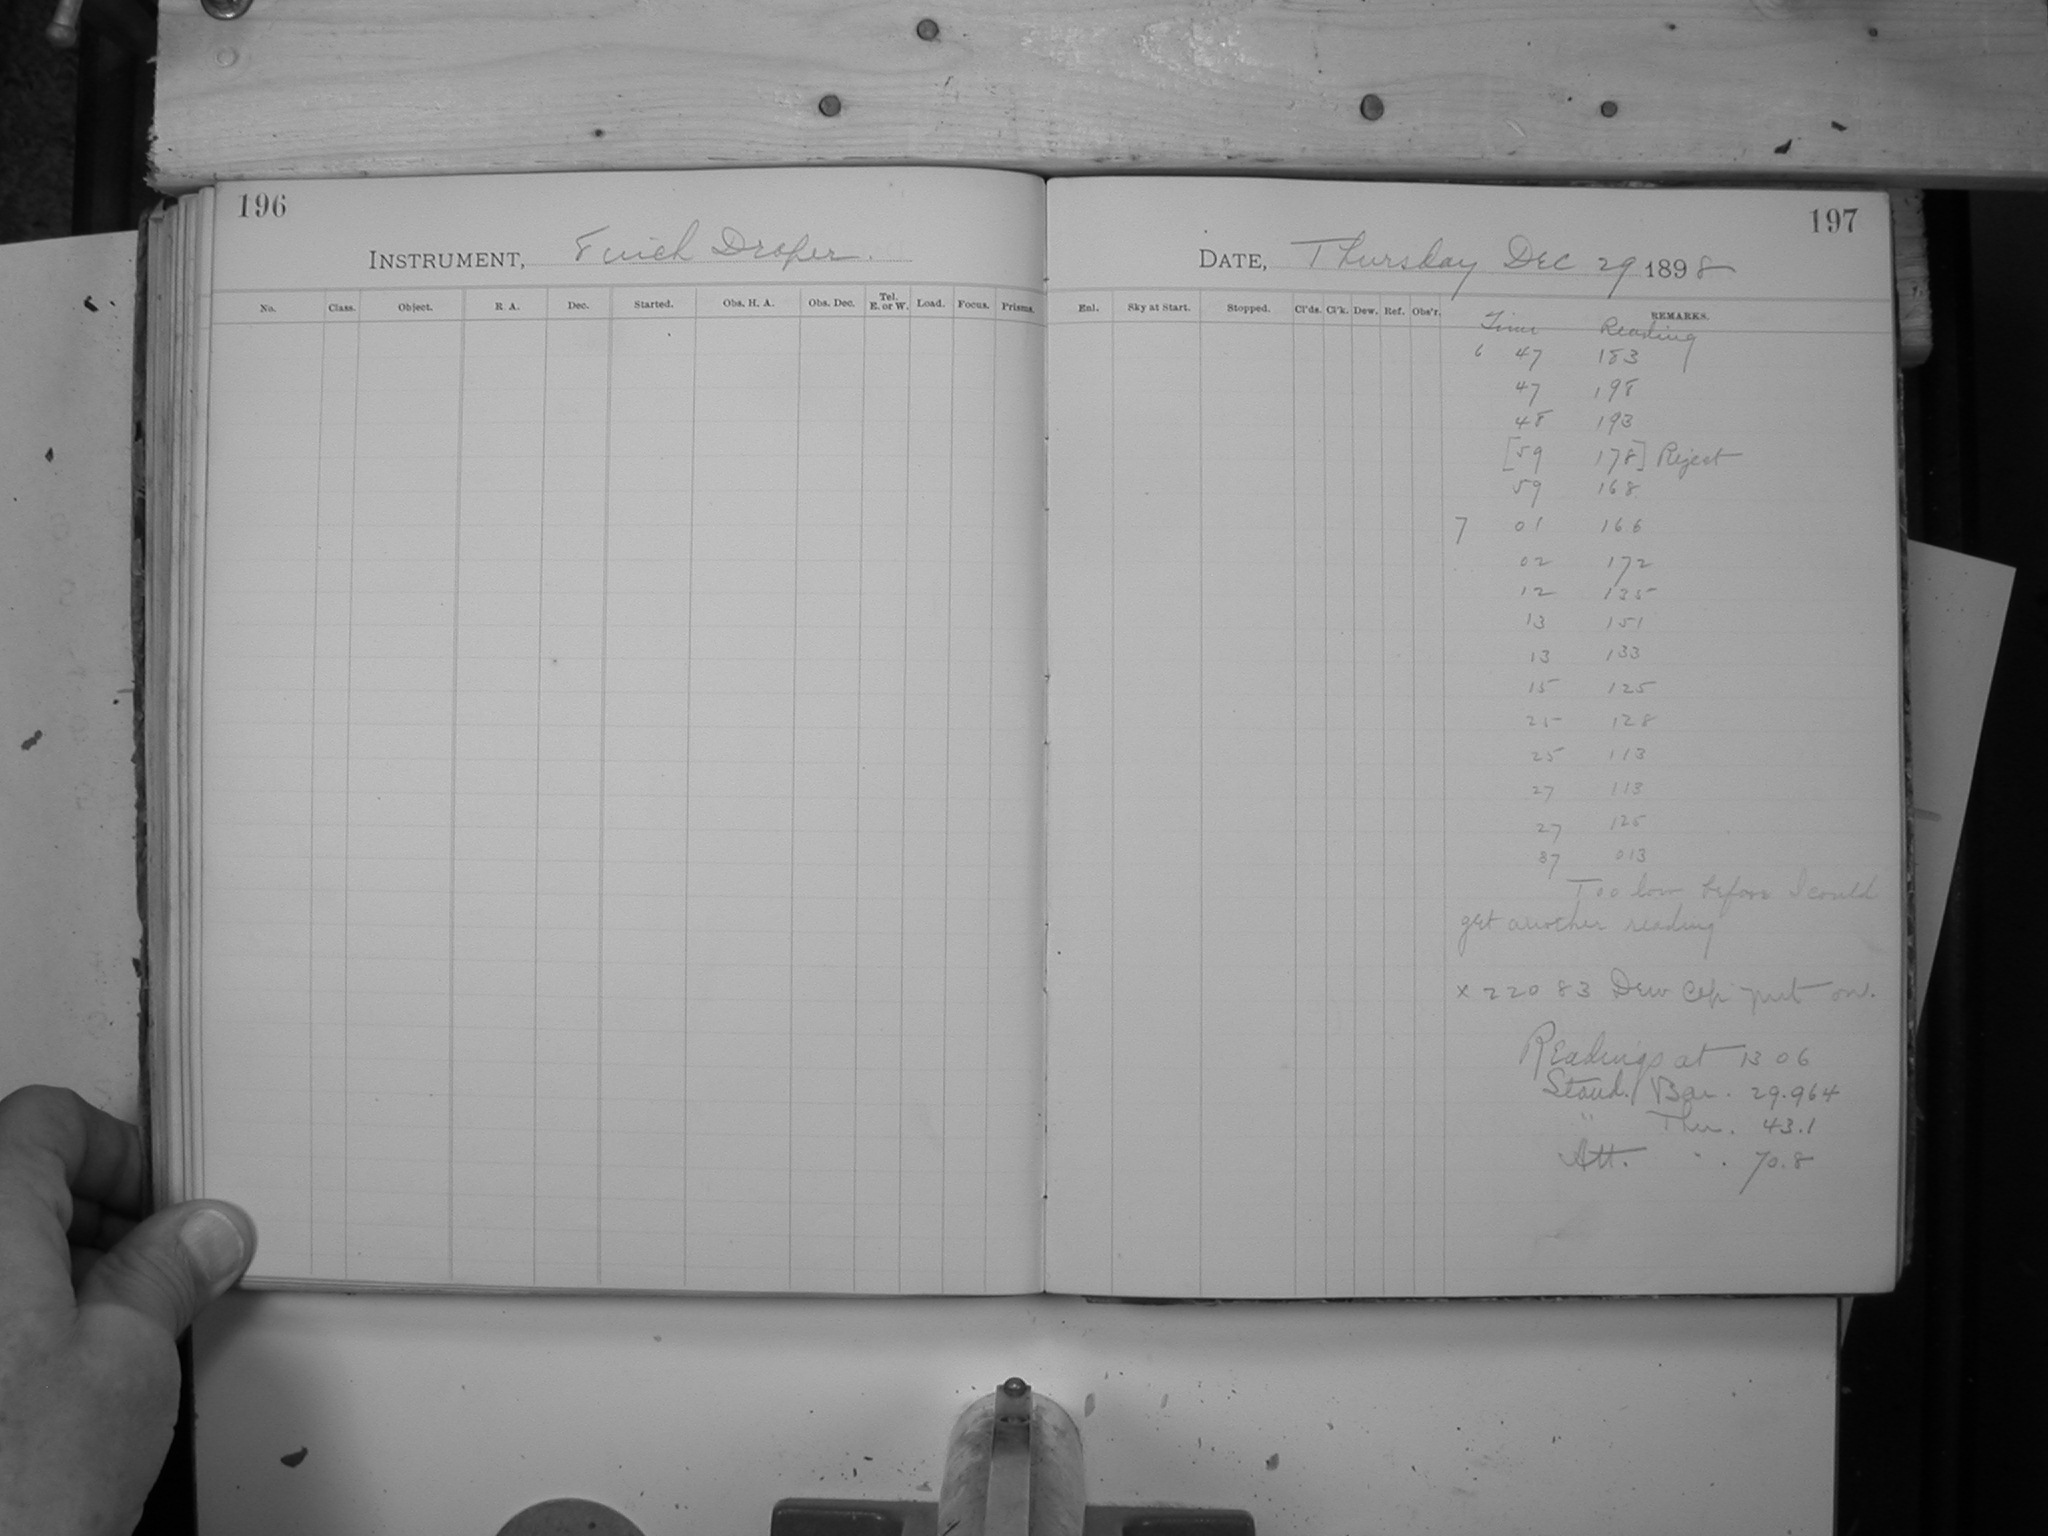 196
INSTRUMENT, 8 inch Draper.
No. Class. Object. R A. Dec. Started. Obs. H. A. Obs. Dec. Tel. E. or W. Load. Focus. Prisms.
197
DATE, Thursday Dec 29 1898
Enl. Sky at Start. Stopped. Cl'ds. Cl'k. Dew. Ref. Obs'r. REMARKS.
Time Reading
6 47 183
47 198
48 193
[59 178] Reject
59 168
7 01 166
02 172
12 135
13 151
13 133
15 125
25 128
25 113
27 113
27 125
37 013
Too low before I could
get another reading
x 22083 Dew Cap put on.
Readings at 13 06
Stand. Bar. 29.964
" Ther. 43.1
Att. " . 70.8